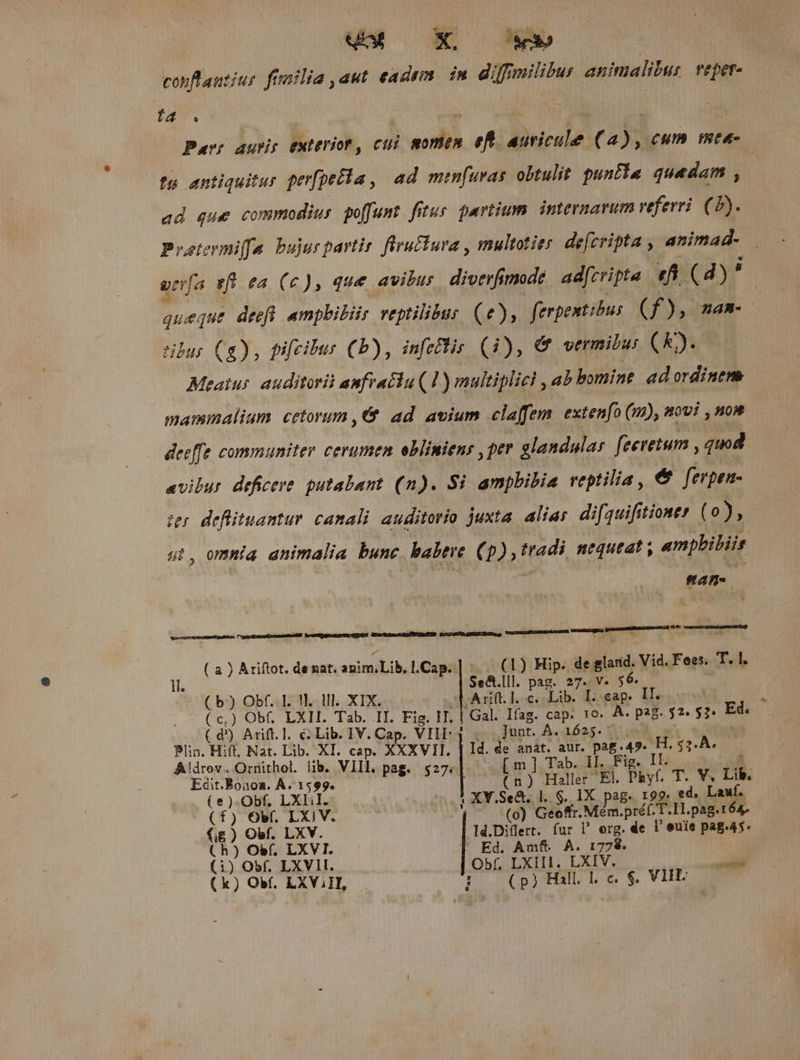 X.
conſtantius ſimilia, aut eadem in diſſimilibus animalibus reper-
ta.
Pars auris exterior, cui nomen eſt auriculæ (a), cum mea-
tu antiquitus perſpecta, ad menſuras obtulit puncta quædam,
ad quæ commodius poſſunt ſitus partium internarum referri (b).
Prætermiſſa hujus partis ſtructura, multoties deſcripta, animad-
verſa eſt ea (c), quæ avibus diverſimode adſcripta eſt (d):
quæque deeſt amphibiis reptilibus (e), ſerpentibus (f), nan-
tibus (g), piſcibus (h), inſectis (i), & vermibus (k).
Meatus auditorii anfractu (l) multiplici, ab homine ad ordinem
mammalium cetorum, & ad avium claſſem extenſo (m), novi, non
deeſſe communiter cerumen obliniens, per glandulas ſecretum, quod
avibus deficere putabant (n). Si amphibia reptilia, & ſerpen-
tes deſtituantur canali auditorio juxta alias diſquiſitiones (o),
ut, omnia animalia hunc habere (p), tradi nequeat; amphibiis
nan-
(a) Ariſtot. de nat. anim. Lib. I. Cap.
II.
(b) Obſ. I. II. III. XIX.
(c) Obſ. LXII. Tab. II. Fig. II.
(d) Ariſt. l. c. Lib. IV. Cap. VIII.
Plin. Hiſt. Nat. Lib. XI. cap. XXXVII.
Aldrov. Ornithol. lib. VIII. pag. 527.
Edit. Bonon. A. 1599.
(e) Obſ. LXIII.
(f) Obſ. LXIV.
(g) Obſ. LXV.
(h) Obſ. LXVI.
(i) Obſ. LXVII.
(k) Obſ. LXVIII,
(l) Hip. de gland. Vid. Foes. T. I.
Sect. III. pag. 27. v. 56.
Ariſt. l. c. Lib. I. cap. II.
Gal. Iſag. cap. 10. A. pag. 52. 53. Ed.
Junt. A. 1625.
Id. de anat. aur. pag. 49. H. 53. A.
[m] Tab. II. Fig. II.
(n) Haller El. Phyſ. T. V. Lib.
XV. Sect. I. §. IX pag. 199. ed. Lauſ.
(o) Geoffr. Mém. préſ. T. II. pag. 164.
Id. Diſſert. ſur l' org. de l' ouïe pag. 45.
Ed. Amſt. A. 1778.
Obſ. LXIII. LXIV.
(p) Hall. l. c. §. VIII.